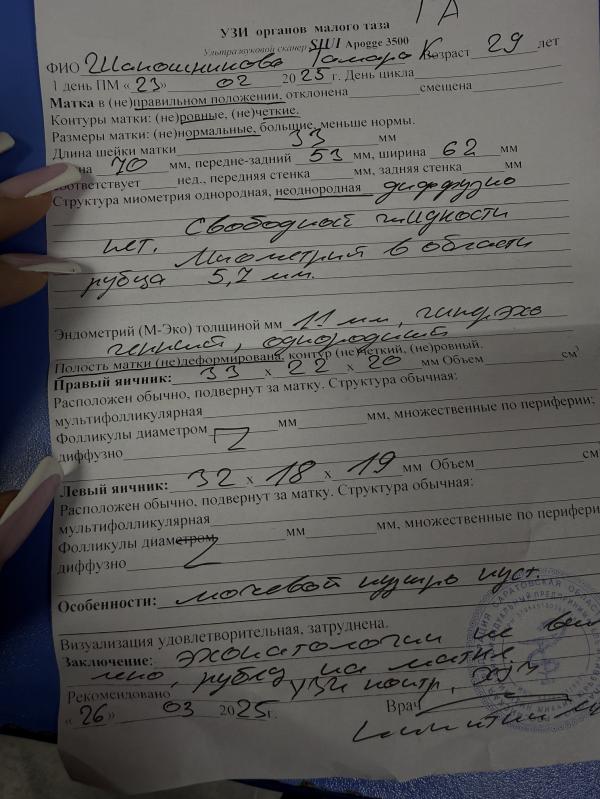 УЗИ органов малого таза
Ультразвуковой сканер SIUI Apogge 3500
ФИО Шапошникова Тамара К Возраст 29 лет
1 день ПМ «23» 02 2025 г. День цикла
Матка в (не)правильном положении, отклонена смещена
Контуры матки: (не)ровные, (не)четкие.
Размеры матки: (не)нормальные, больше, меньше нормы.
Длина шейки матки 33 мм
70 мм, передне-задний 53 мм, ширина 62 мм
соответствует нед., передняя стенка мм, задняя стенка мм
Структура миометрия однородная, неоднородная диффузно
Свободной жидкости
нет. Миометрий в области
рубца 5,7 мм.
Эндометрий (М-Эко) толщиной мм 11 мм,
однородный
Полость матки (не)деформирована, контур (не)четкий, (не)ровный.
Правый яичник: 33 х 22 х 20 мм Объем см³
Расположен обычно, подвернут за матку. Структура обычная:
мультифолликулярная
Фолликулы диаметром мм мм, множественные по периферии;
диффузно
Левый яичник: 32 х 18 х 19 мм Объем см
Расположен обычно, подвернут за матку. Структура обычная:
мультифолликулярная
Фолликулы диаметром мм мм, множественные по перифери
диффузно
Особенности: мочевой пузырь пуст.
Визуализация удовлетворительная, затруднена.
Заключение: эхопатологии не выяв
лено, рубец на матке
Рекомендовано УЗИ контр,
«26» 03 2025г. Врач